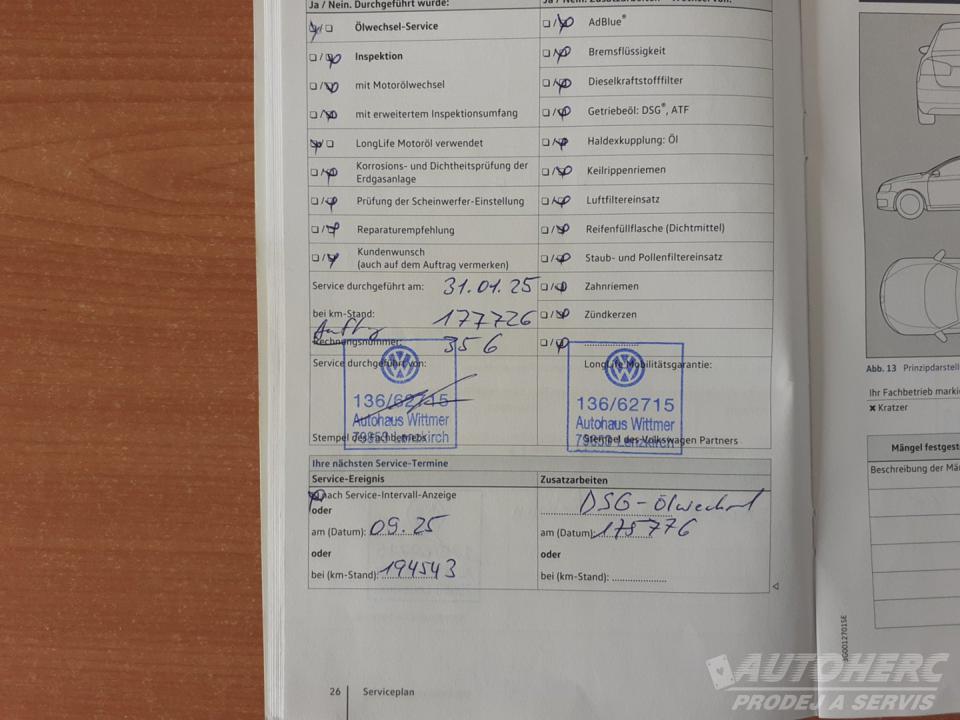 Ja / Nein. Durchgeführt wurde:
Ölwechsel-Service
Inspektion
mit Motorölwechsel
mit erweitertem Inspektionsumfang
LongLife Motoröl verwendet
Korrosions- und Dichtheitsprüfung der
Erdgasanlage
Prüfung der Scheinwerfer-Einstellung
Reparaturempfehlung
Kundenwunsch
(auch auf dem Auftrag vermerken)
Service durchgeführt am: 31.01.25
bei km-Stand: 177726
Rechnungsnummer: 356
Service durchgeführt von:
136/62715
Autohaus Wittmer
79853 Lenzkirch
Stempel des Fachbetriebs
Ja / Nein. Zusatzarbeiten - Wechsel von:
AdBlue®
Bremsflüssigkeit
Dieselkraftstofffilter
Getriebeöl: DSG®, ATF
Haldexkupplung: Öl
Keilrippenriemen
Luftfiltereinsatz
Reifenfüllflasche (Dichtmittel)
Staub- und Pollenfiltereinsatz
Zahnriemen
Zündkerzen
LongLife Mobilitätsgarantie:
136/62715
Autohaus Wittmer
79853 Lenzkirch
Stempel des Volkswagen Partners
Ihre nächsten Service-Termine
Service-Ereignis
nach Service-Intervall-Anzeige
oder
am (Datum): 09.25
oder
bei (km-Stand): 194543
Zusatzarbeiten
DSG-Ölwechsel
am (Datum):
oder
bei (km-Stand):
26 Serviceplan
Abb. 13 Prinzipdarstell
Ihr Fachbetrieb marki
✖ Kratzer
Mängel festgest
Beschreibung der Mä
AUTOHERC
PRODEJ A SERVIS